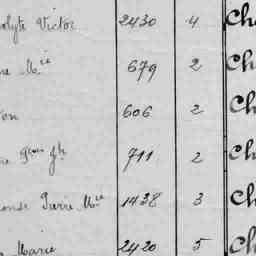 olyte Victor 2430 4 Ch
ne M^ie 679 2 Ch
on 606 2 Ch
711 2 Ch
Pierre M^ie 1438 3 Ch
Marie 2420 5 Ch